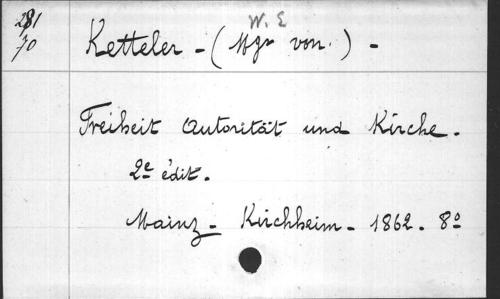 281
70
W. E
Ketteler - (Mgr von.) -
Freiheit Autorität und Kirche.
2e édit.
Mainz - Kirchheim - 1862. 8º